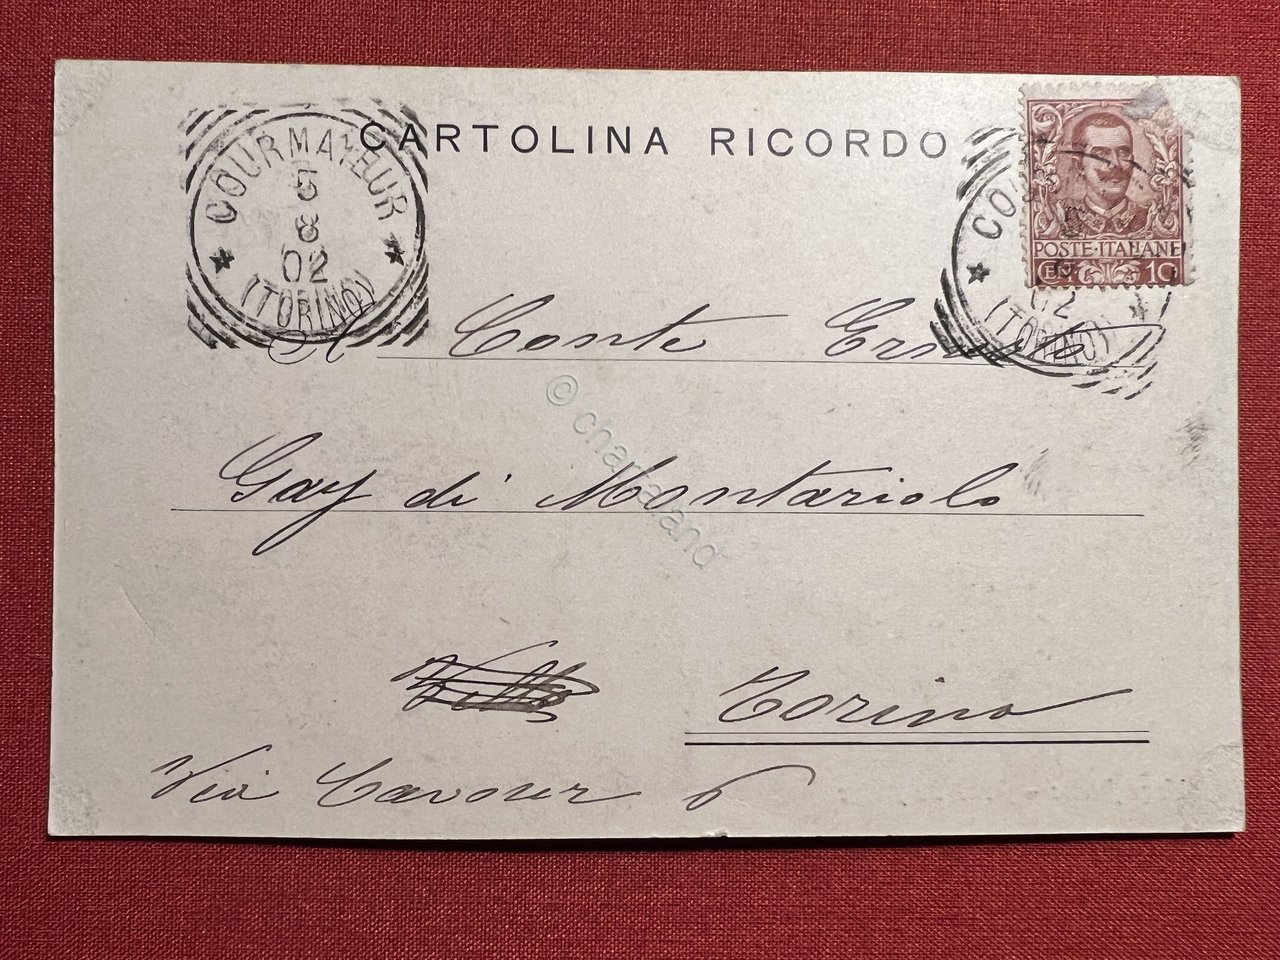 CARTOLINA RICORDO
COURMAYEUR
5
8
02
(TORINO)
POSTE·ITALIANE
10
CO
02
(TORINO)
Al Conte
Gay di Montariolo
Torino
Via Cavour 6
© charta.land